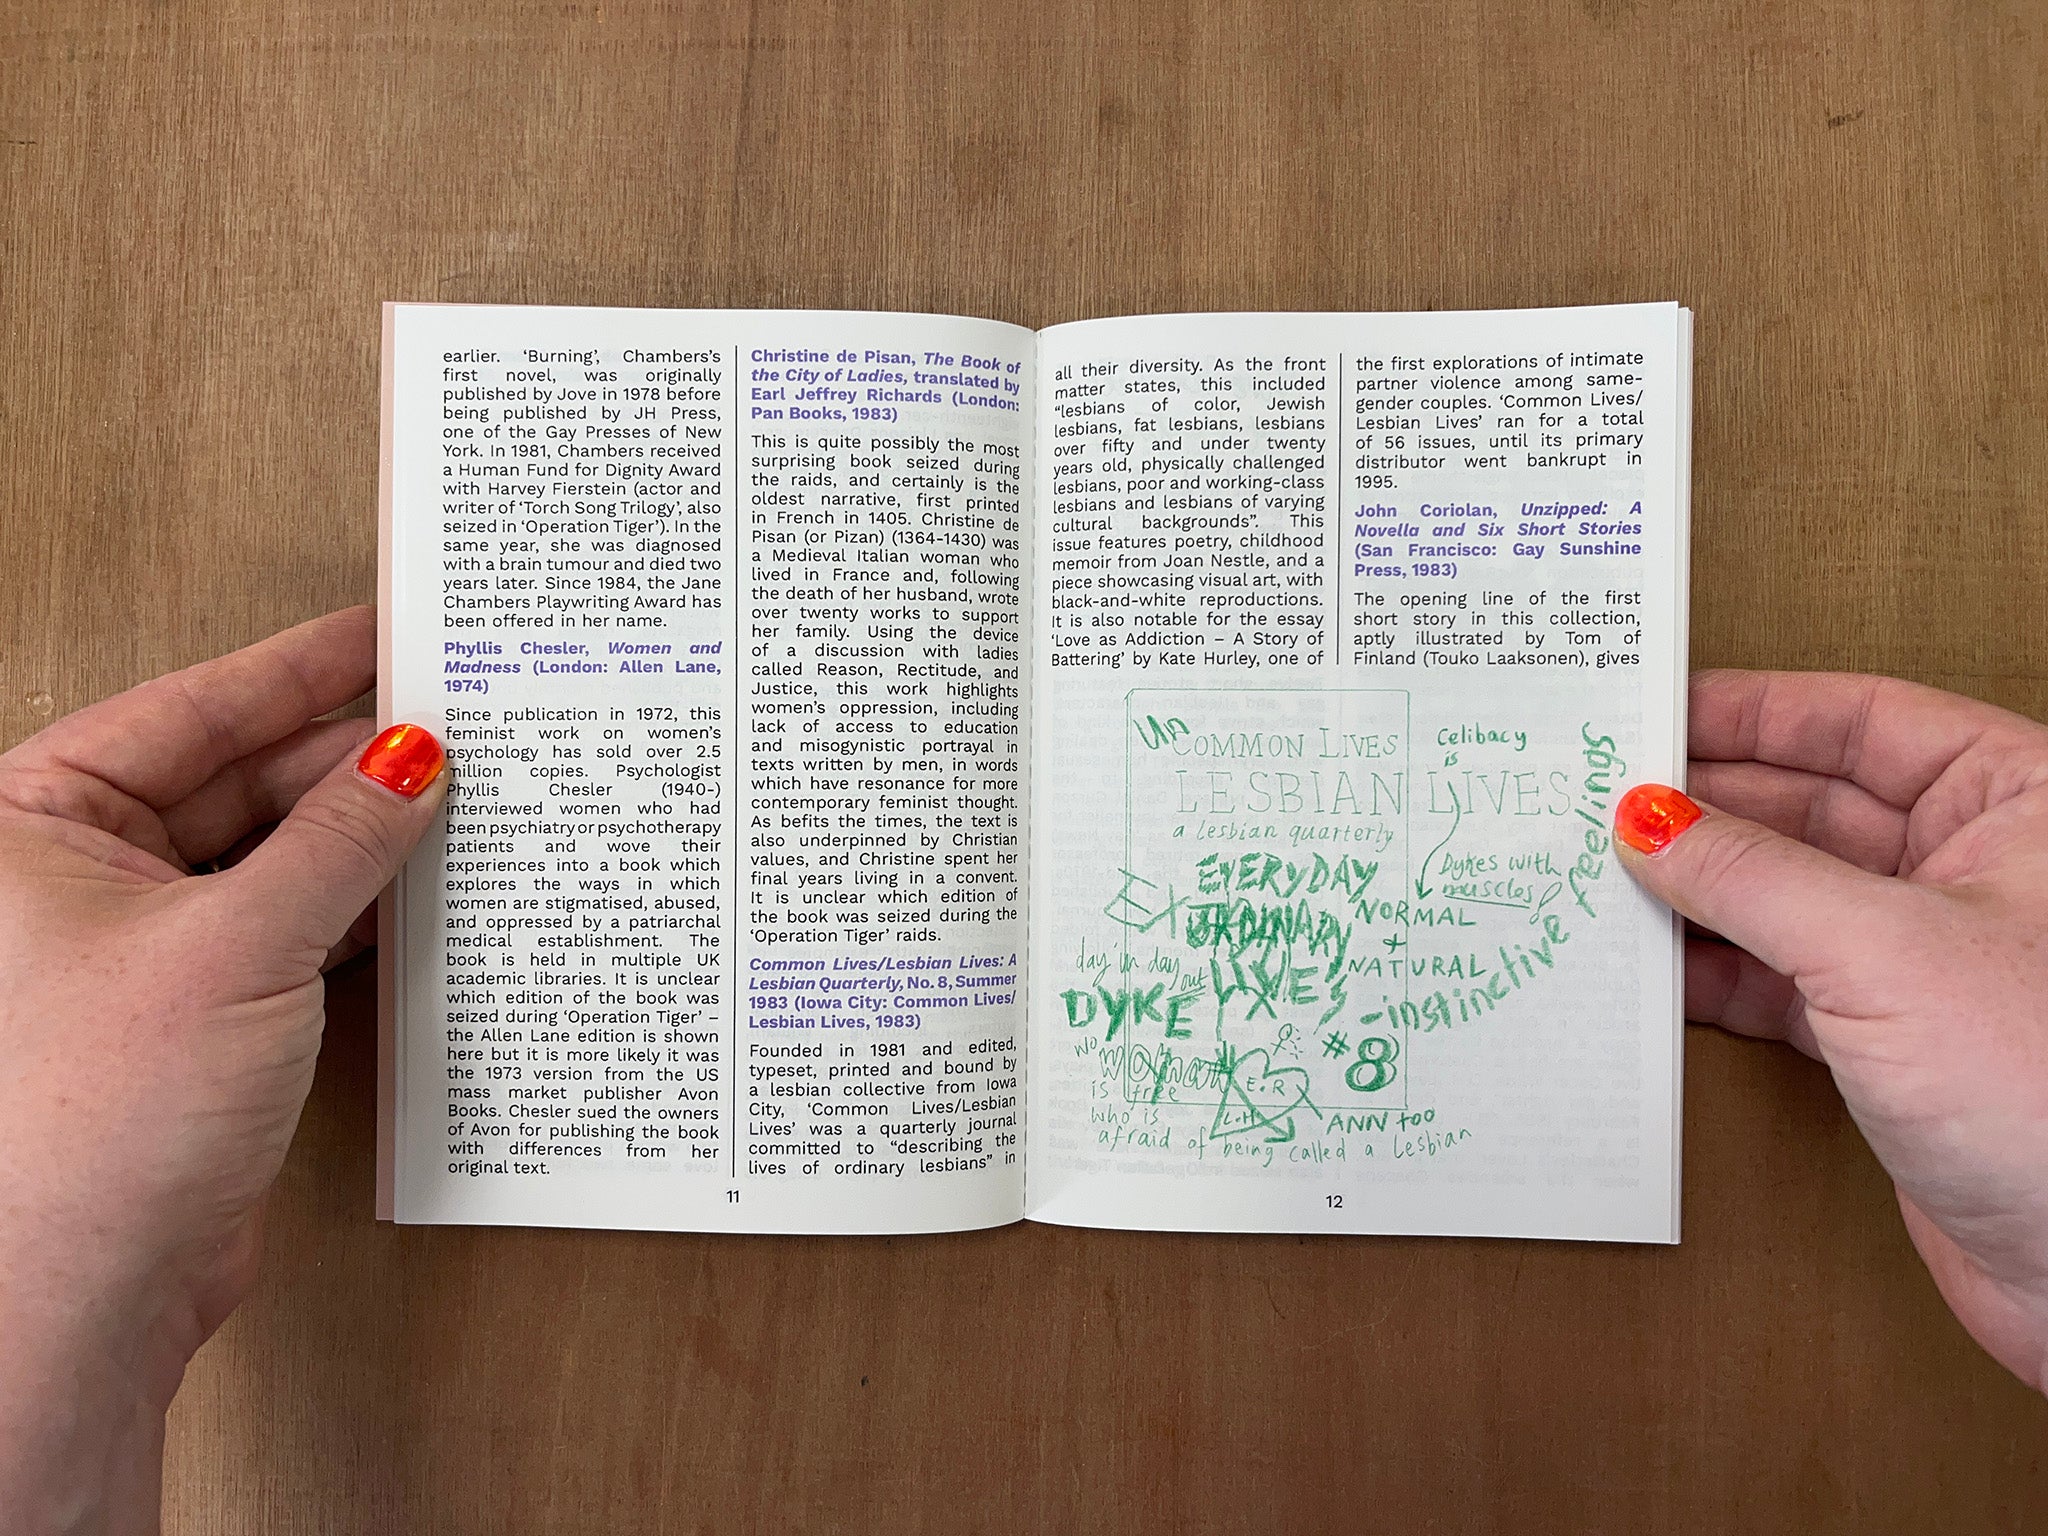 earlier. ‘Burning’, Chambers’s
first novel, was originally
published by Jove in 1978 before
being published by JH Press,
one of the Gay Presses of New
York. In 1981, Chambers received
a Human Fund for Dignity Award
with Harvey Fierstein (actor and
writer of ‘Torch Song Trilogy’, also
seized in ‘Operation Tiger’). In the
same year, she was diagnosed
with a brain tumour and died two
years later. Since 1984, the Jane
Chambers Playwriting Award has
been offered in her name.
Phyllis Chesler, Women and
Madness (London: Allen Lane,
1974)
Since publication in 1972, this
feminist work on women’s
psychology has sold over 2.5
million copies. Psychologist
Phyllis Chesler (1940-)
interviewed women who had
been psychiatry or psychotherapy
patients and wove their
experiences into a book which
explores the ways in which
women are stigmatised, abused,
and oppressed by a patriarchal
medical establishment. The
book is held in multiple UK
academic libraries. It is unclear
which edition of the book was
seized during ‘Operation Tiger’ –
the Allen Lane edition is shown
here but it is more likely it was
the 1973 version from the US
mass market publisher Avon
Books. Chesler sued the owners
of Avon for publishing the book
with differences from her
original text.
Christine de Pisan, The Book of
the City of Ladies, translated by
Earl Jeffrey Richards (London:
Pan Books, 1983)
This is quite possibly the most
surprising book seized during
the raids, and certainly is the
oldest narrative, first printed
in French in 1405. Christine de
Pisan (or Pizan) (1364-1430) was
a Medieval Italian woman who
lived in France and, following
the death of her husband, wrote
over twenty works to support
her family. Using the device
of a discussion with ladies
called Reason, Rectitude, and
Justice, this work highlights
women’s oppression, including
lack of access to education
and misogynistic portrayal in
texts written by men, in words
which have resonance for more
contemporary feminist thought.
As befits the times, the text is
also underpinned by Christian
values, and Christine spent her
final years living in a convent.
It is unclear which edition of
the book was seized during the
‘Operation Tiger’ raids.
Common Lives/Lesbian Lives: A
Lesbian Quarterly, No. 8, Summer
1983 (Iowa City: Common Lives/
Lesbian Lives, 1983)
Founded in 1981 and edited,
typeset, printed and bound by
a lesbian collective from Iowa
City, ‘Common Lives/Lesbian
Lives’ was a quarterly journal
committed to “describing the
lives of ordinary lesbians” in
11
all their diversity. As the front
matter states, this included
“lesbians of color, Jewish
lesbians, fat lesbians, lesbians
over fifty and under twenty
years old, physically challenged
lesbians, poor and working-class
lesbians and lesbians of varying
cultural backgrounds”. This
issue features poetry, childhood
memoir from Joan Nestle, and a
piece showcasing visual art, with
black-and-white reproductions.
It is also notable for the essay
‘Love as Addiction – A Story of
Battering’ by Kate Hurley, one of
the first explorations of intimate
partner violence among same-
gender couples. ‘Common Lives/
Lesbian Lives’ ran for a total
of 56 issues, until its primary
distributor went bankrupt in
1995.
John Coriolan, Unzipped: A
Novella and Six Short Stories
(San Francisco: Gay Sunshine
Press, 1983)
The opening line of the first
short story in this collection,
aptly illustrated by Tom of
Finland (Touko Laaksonen), gives
UN
COMMON LIVES
LESBIAN LIVES
a lesbian quarterly
Celibacy
is
Dykes with
muscles!
EVERYDAY
EXTRORDINARY
LIVES
NORMAL
+
NATURAL
-instinctive feelings
day in day out
DYKE
#8
no woman
is free
who is
afraid of being called a lesbian
E.R
L.H
ANN too
12